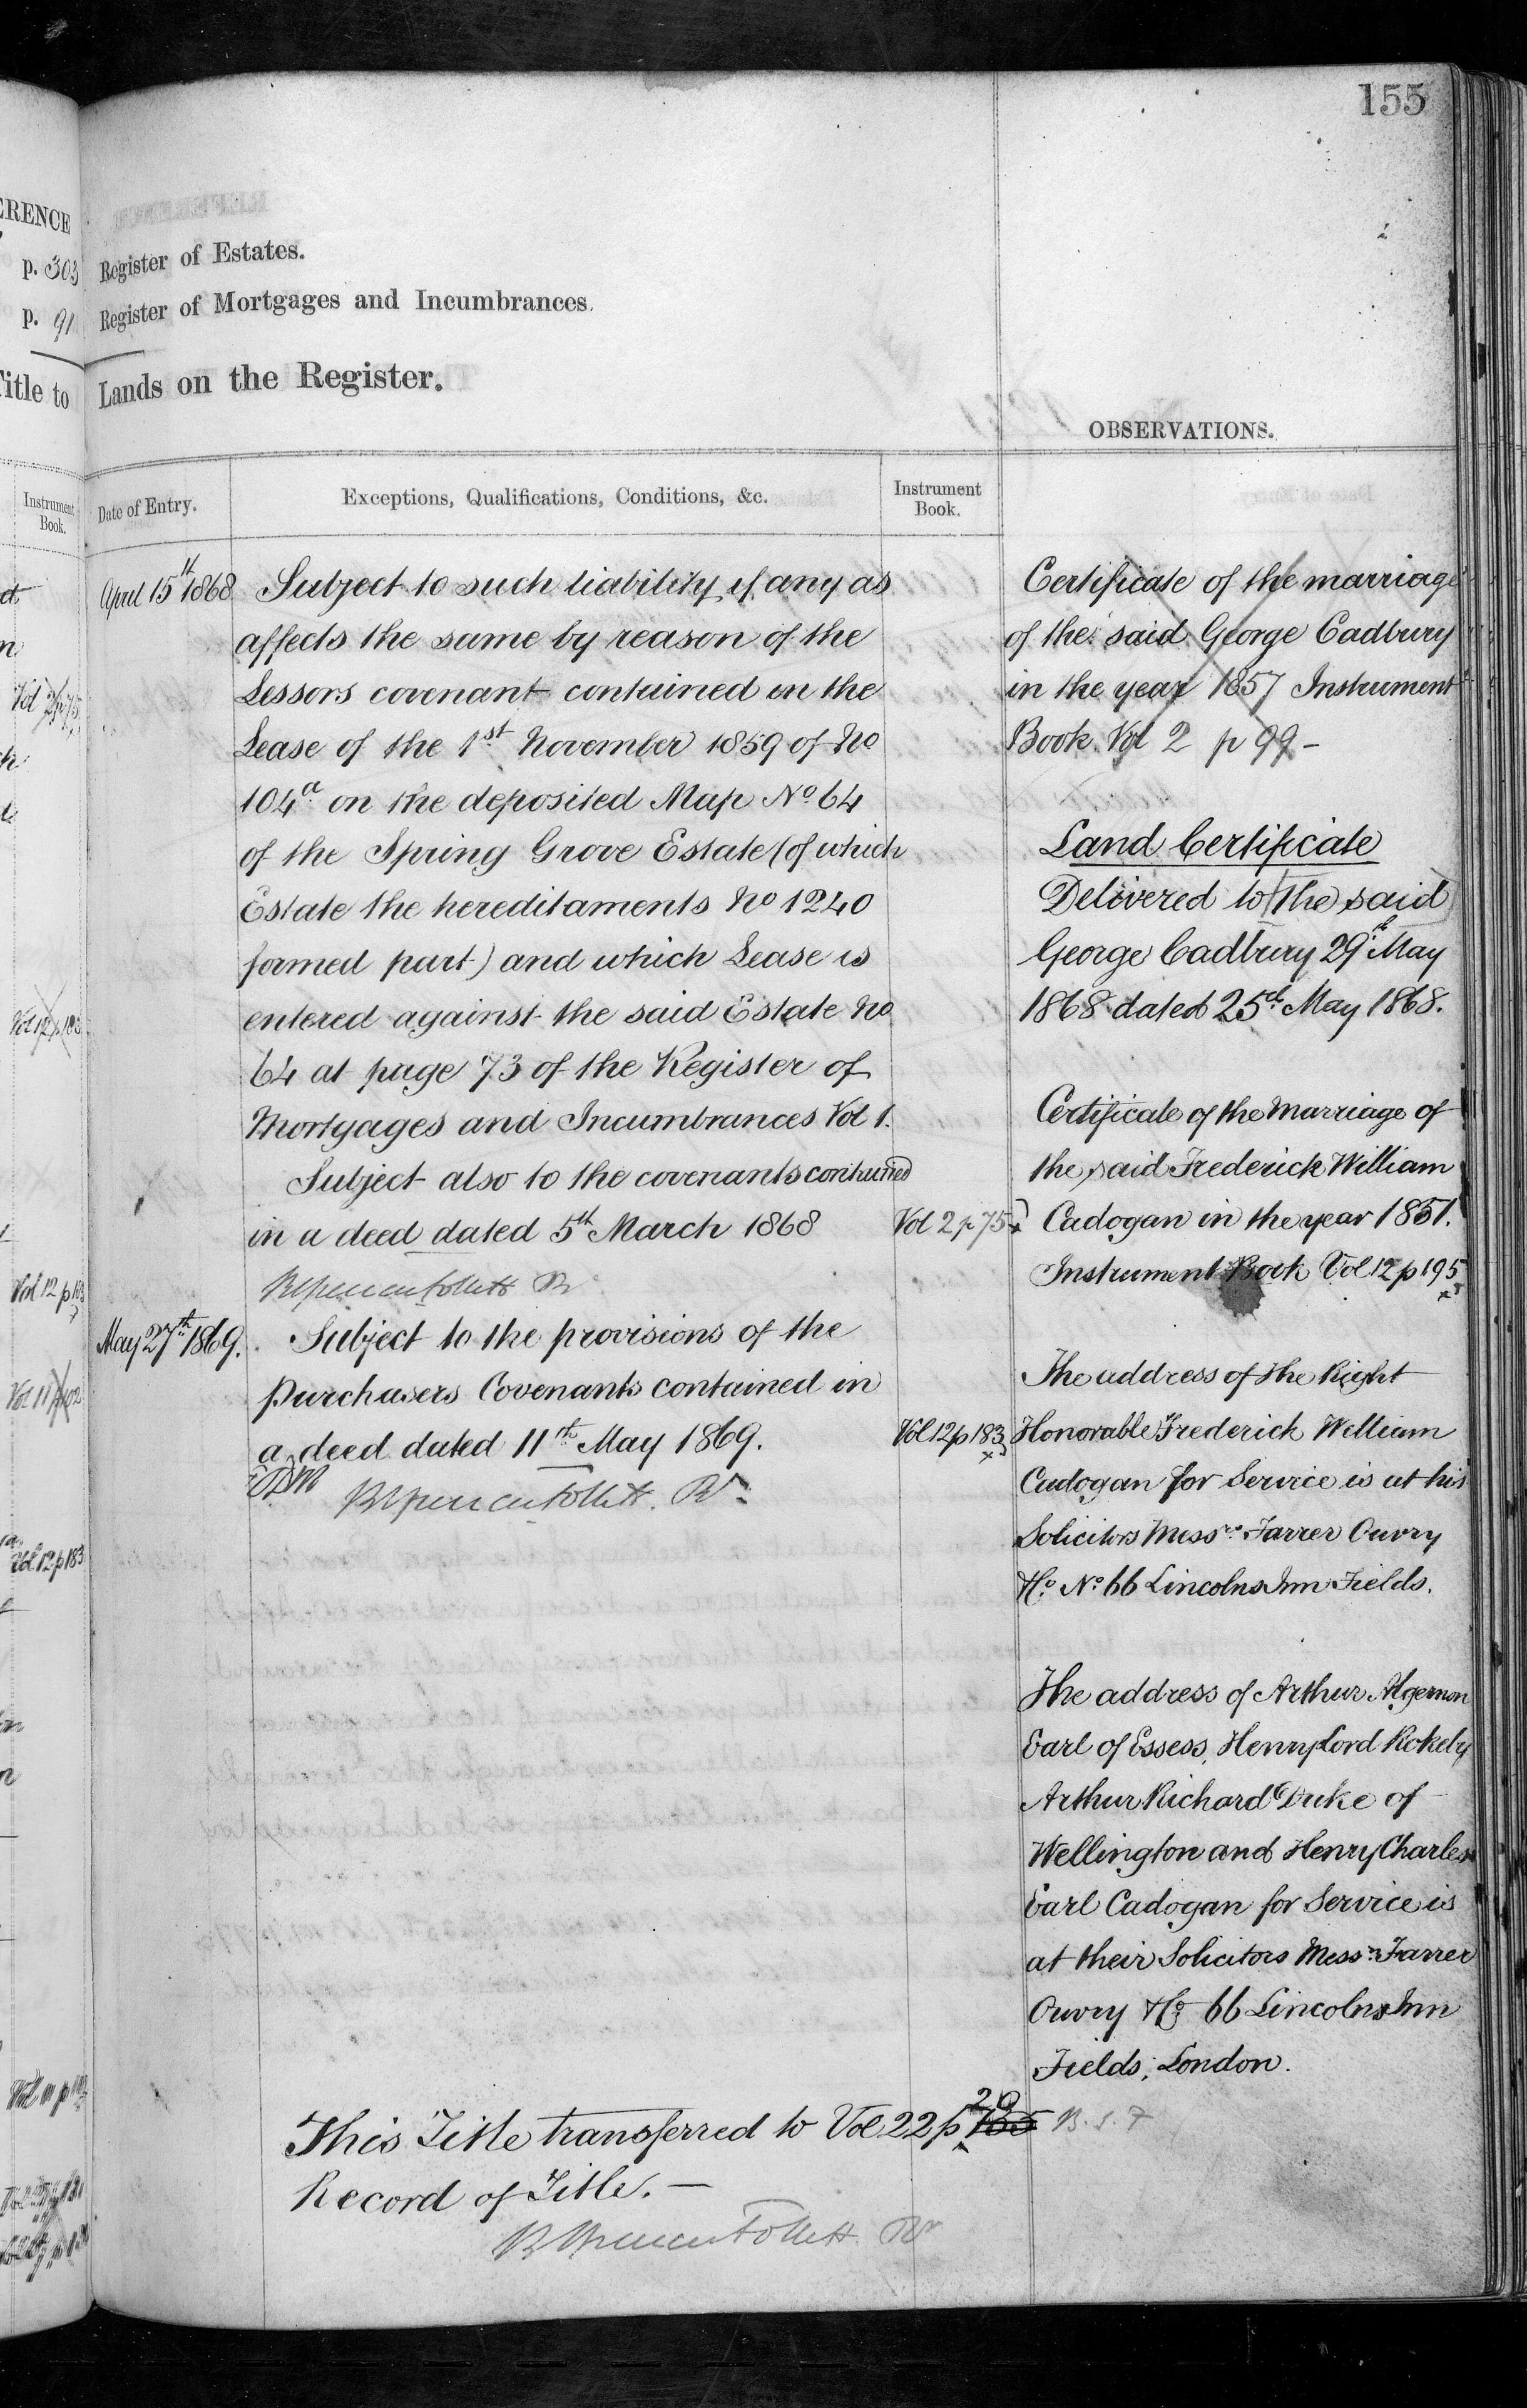 155
ERENCE
p. 303 Register of Estates.
p. 91 Register of Mortgages and Incumbrances.
Title to Lands on the Register.
OBSERVATIONS.
Instrument Book.
Date of Entry.
Exceptions, Qualifications, Conditions, &c.
Instrument
Book.
April 15th 1868
Subject to such liability if any as
affects the same by reason of the
Lessors covenant contained in the
Lease of the 1st November 1859 of No
104a on the deposited Map No. 64
of the Spring Grove Estate (of which
Estate the hereditaments No 1240
formed part) and which Lease is
entered against the said Estate No
64 at page 73 of the Register of
Mortgages and Incumbrances Vol 1.
Subject also to the covenants contained
in a deed dated 5th March 1868
Vol 2 p 75
May 27th 1869.
Subject to the provisions of the
purchasers Covenants contained in
a deed dated 11th May 1869.
Vol 12 p 183
Certificate of the marriage
of the said George Cadbury
in the year 1857 Instrument
Book Vol 2 p 99 -
Land Certificate
Delivered to the said
George Cadbury 29th May
1868 dated 25th May 1868.
Certificate of the Marriage of
the said Frederick William
Cadogan in the year 1851.
Instrument Book Vol 12 p 195
The address of the Right
Honorable Frederick William
Cadogan for Service is at his
Solicitors Messrs Farrer Ouvry
& Co No 66 Lincolns Inn Fields.
The address of Arthur Algernon
Earl of Essess, Henry Lord Rokeby
Arthur Richard Duke of
Wellington and Henry Charles
Earl Cadogan for Service is
at their Solicitors Messrs Farrer
Ouvry & Co 66 Lincolns Inn
Fields, London.
20
This Title transferred to Vol 22 p 155 B. S. F
Record of Title. -
Vol 12 p 183
Vol 12 p 183